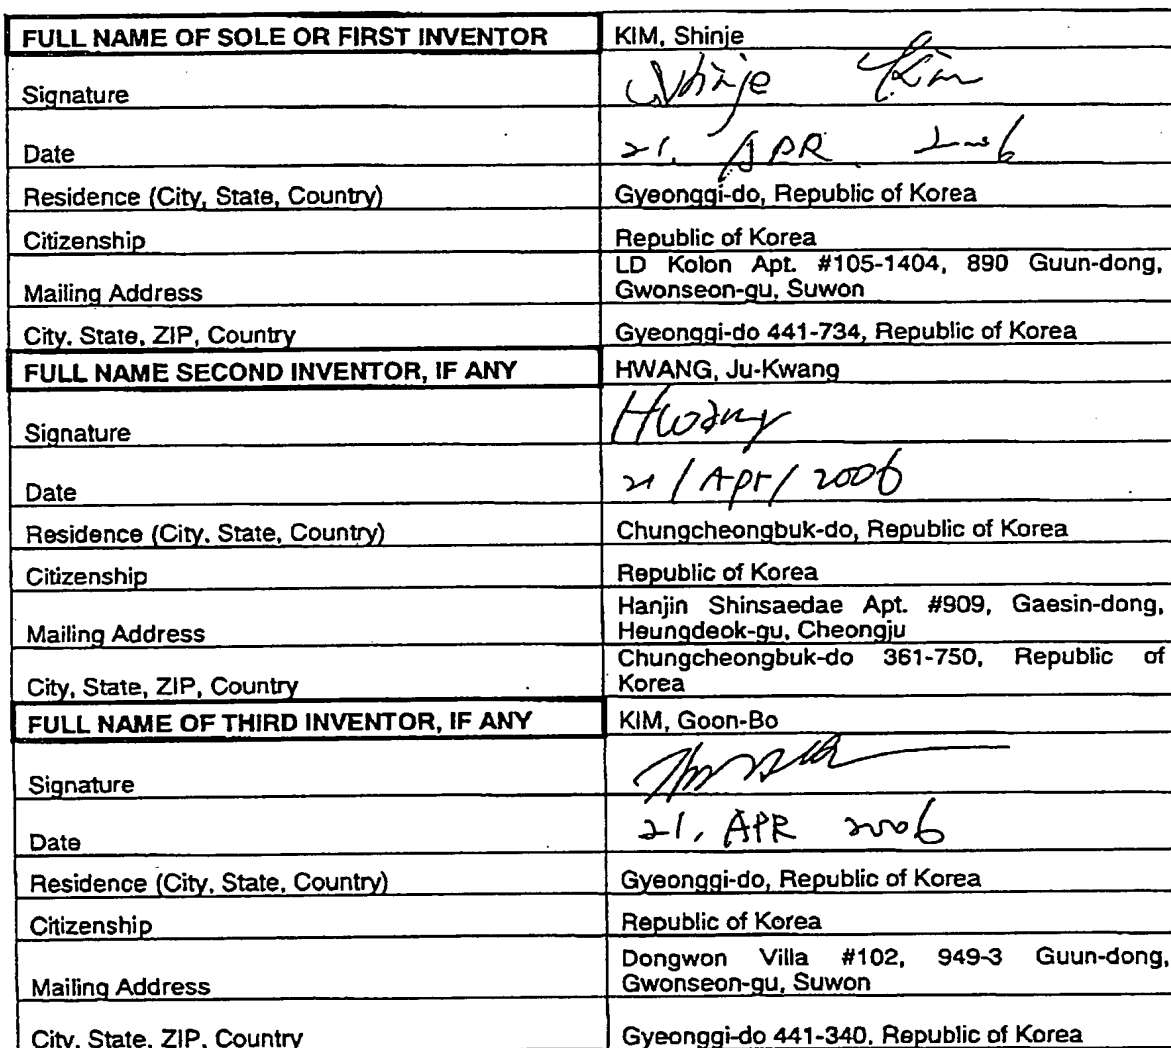 FULL NAME OF SOLE OR FIRST INVENTOR KIM, Shinje
Signature Shinje Kim
Date 21. APR. 2006
Residence (City, State, Country) Gyeonggi-do, Republic of Korea
Citizenship Republic of Korea
Mailing Address LD Kolon Apt. #105-1404, 890 Guun-dong,
Gwonseon-gu, Suwon
City, State, ZIP, Country Gyeonggi-do 441-734, Republic of Korea
FULL NAME SECOND INVENTOR, IF ANY HWANG, Ju-Kwang
Signature Hwang
Date 21/Apr/2006
Residence (City, State, Country) Chungcheongbuk-do, Republic of Korea
Citizenship Republic of Korea
Mailing Address Hanjin Shinsaedae Apt. #909, Gaesin-dong,
Heungdeok-gu, Cheongju
City, State, ZIP, Country Chungcheongbuk-do 361-750, Republic of
Korea
FULL NAME OF THIRD INVENTOR, IF ANY KIM, Goon-Bo
Signature
Date 21, APR 2006
Residence (City, State, Country) Gyeonggi-do, Republic of Korea
Citizenship Republic of Korea
Mailing Address Dongwon Villa #102, 949-3 Guun-dong,
Gwonseon-gu, Suwon
City, State, ZIP, Country Gyeonggi-do 441-340, Republic of Korea